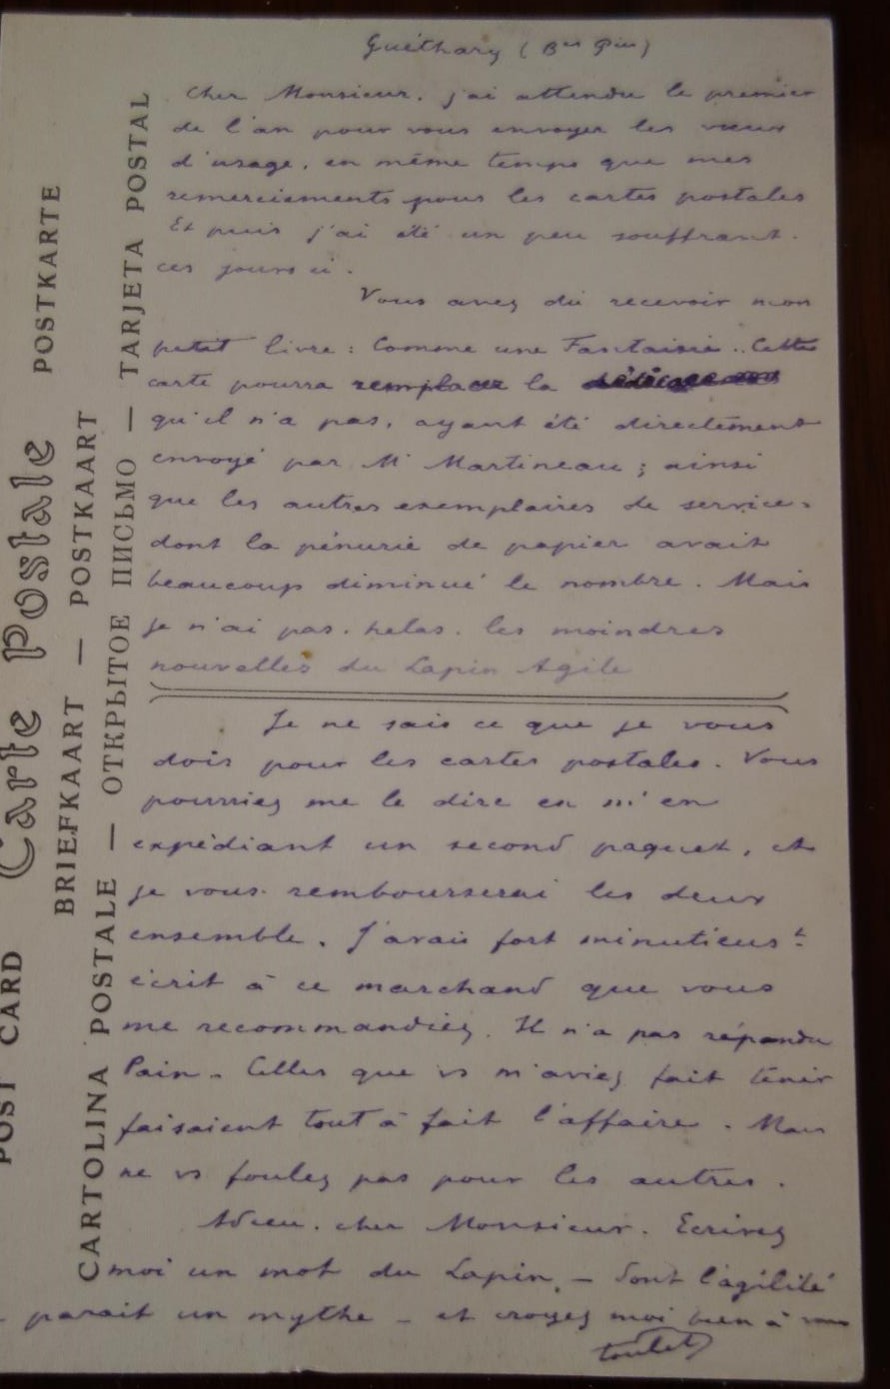 Guéthary (Bses Pées)
Cher Monsieur. j'ai attendu le premier
de l'an pour vous envoyer les vœux
d'usage, en même temps que mes
remerciements pour les cartes postales
Et puis j'ai été un peu souffrant.
ces jours ci.
Vous avez dû recevoir mon
petit livre : Comme une Fantaisie.. Cette
carte pourra remplacer la dédicace
qu'il n'a pas, ayant été directement
envoyé par Mr Martineau ; ainsi
que les autres exemplaires de service,
dont la pénurie de papier avait
beaucoup diminué le nombre. Mais
je n'ai pas. helas. les moindres
nouvelles du Lapin Agile
Je ne sais ce que je vous
dois pour les cartes postales. Vous
pourriez me le dire en m'en
expédiant un second paquet, et
je vous rembourserai les deux
ensemble. J'avais fort minutieust
écrit à ce marchand que vous
me recommandiez. Il n'a pas répondu
Pain. Celles que vs m'aviez fait tenir
faisaient tout à fait l'affaire. Mais
ne vs foulez pas pour les autres.
Adieu. cher Monsieur. Ecrivez
moi un mot du Lapin, — dont l'agilité
parait un mythe — et croyez moi bien à vous
toulet
Carte Postale
POST CARD
BRIEFKAART — POSTKAART POSTKARTE
CARTOLINA POSTALE — ОТКРЫТОЕ ПИСЬМО — TARJETA POSTAL